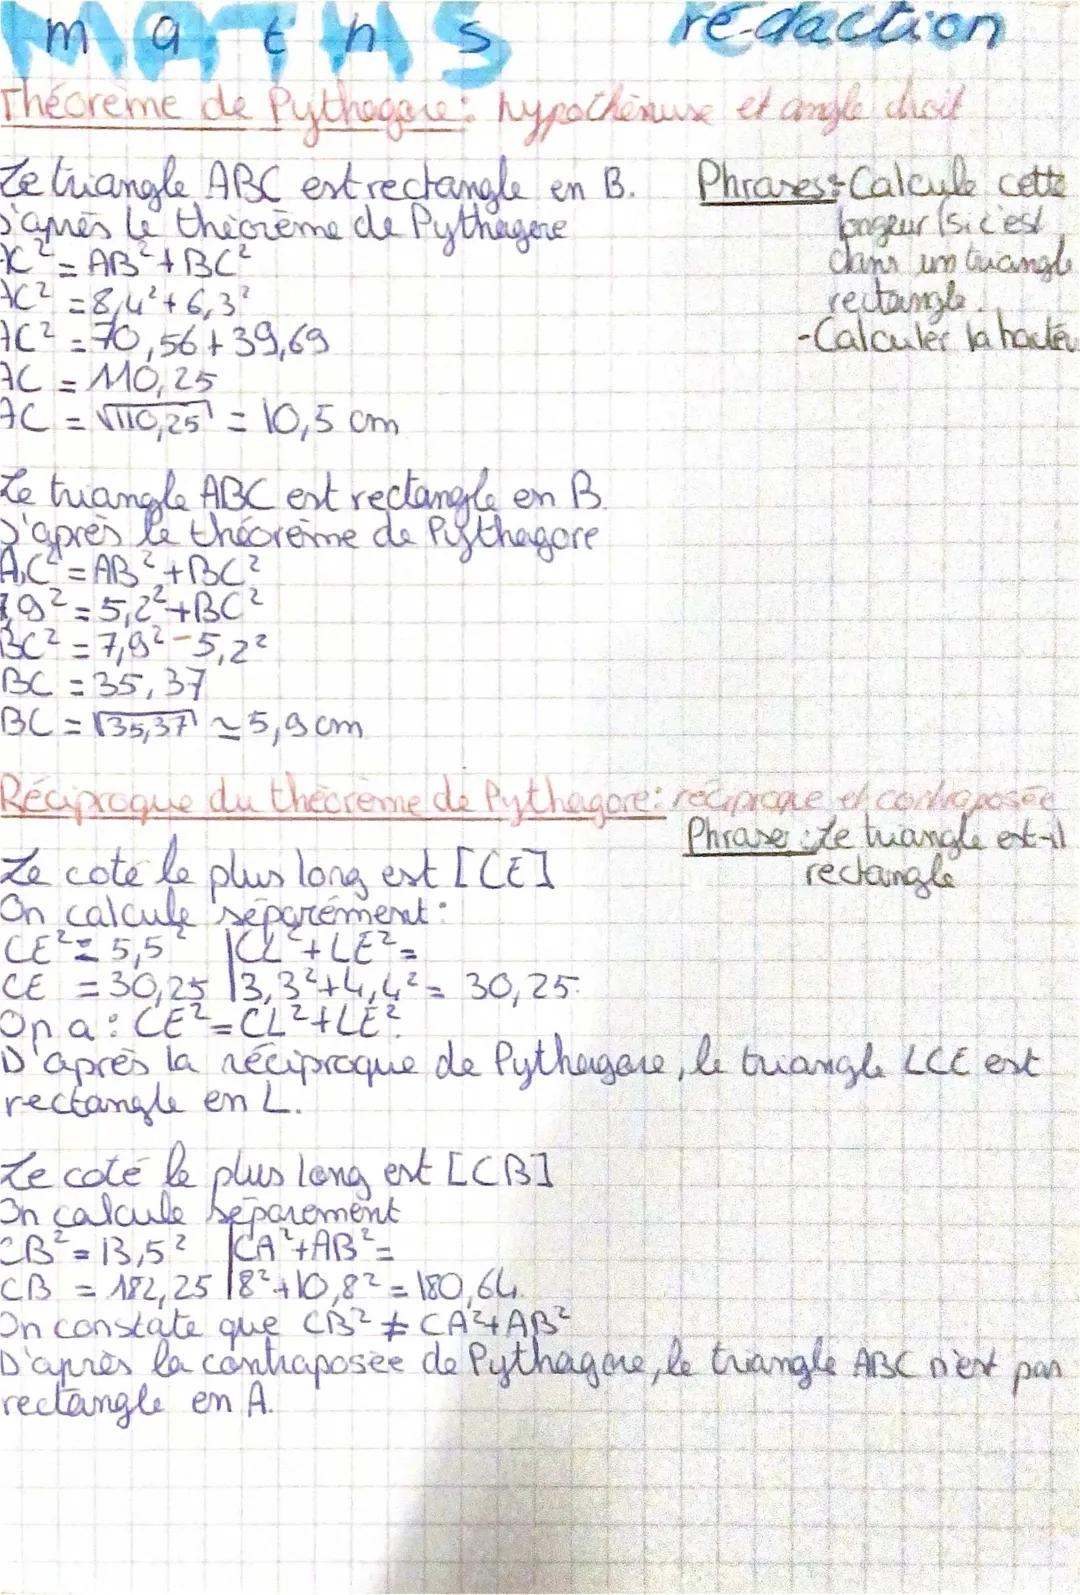 maths rédaction
Théorème de Pythagore: hypothénuse et angle droit
Le triangle ABC est rectangle en B.
D'après le théorème de Pythagore
AC² = AB² + BC²
AC² = 8,4² + 6,3²
AC² = 70,56 + 39,69
AC = 110,25
AC = √110,25 = 10,5 cm
Phrases: - Calcule cette
longeur (si c'est
dans un triangle
rectangle.
- Calculer la
Le triangle ABC est rectangle en B.
D'après le théorème de Pythagore
AC² = AB² + BC²
7,9² = 5,2² + BC²
BC² = 7,9² - 5,2²
BC = 35,37
BC = √35,37 ≃ 5,9 cm
Réciproque du théorème de Pythagore: réciproque et contraposée
Phrase: Le triangle est-il
rectangle
Le coté le plus long est [CE]
On calcule séparément:
CE² = 5,5² | CL² + LE² =
CE = 30,25 | 3,3² + 4,4² = 30,25.
On a : CE² = CL² + LE².
D'après la réciproque de Pythagore, le triangle LCE est
rectangle en L.
Le coté le plus long est [CB]
On calcule séparement
CB² = 13,5² | CA² + AB² =
CB = 182,25 | 8² + 10,8² = 180,64.
On constate que CB² ≠ CA² + AB²
D'après la contraposée de Pythagore, le triangle ABC n'est pas
rectangle en A.